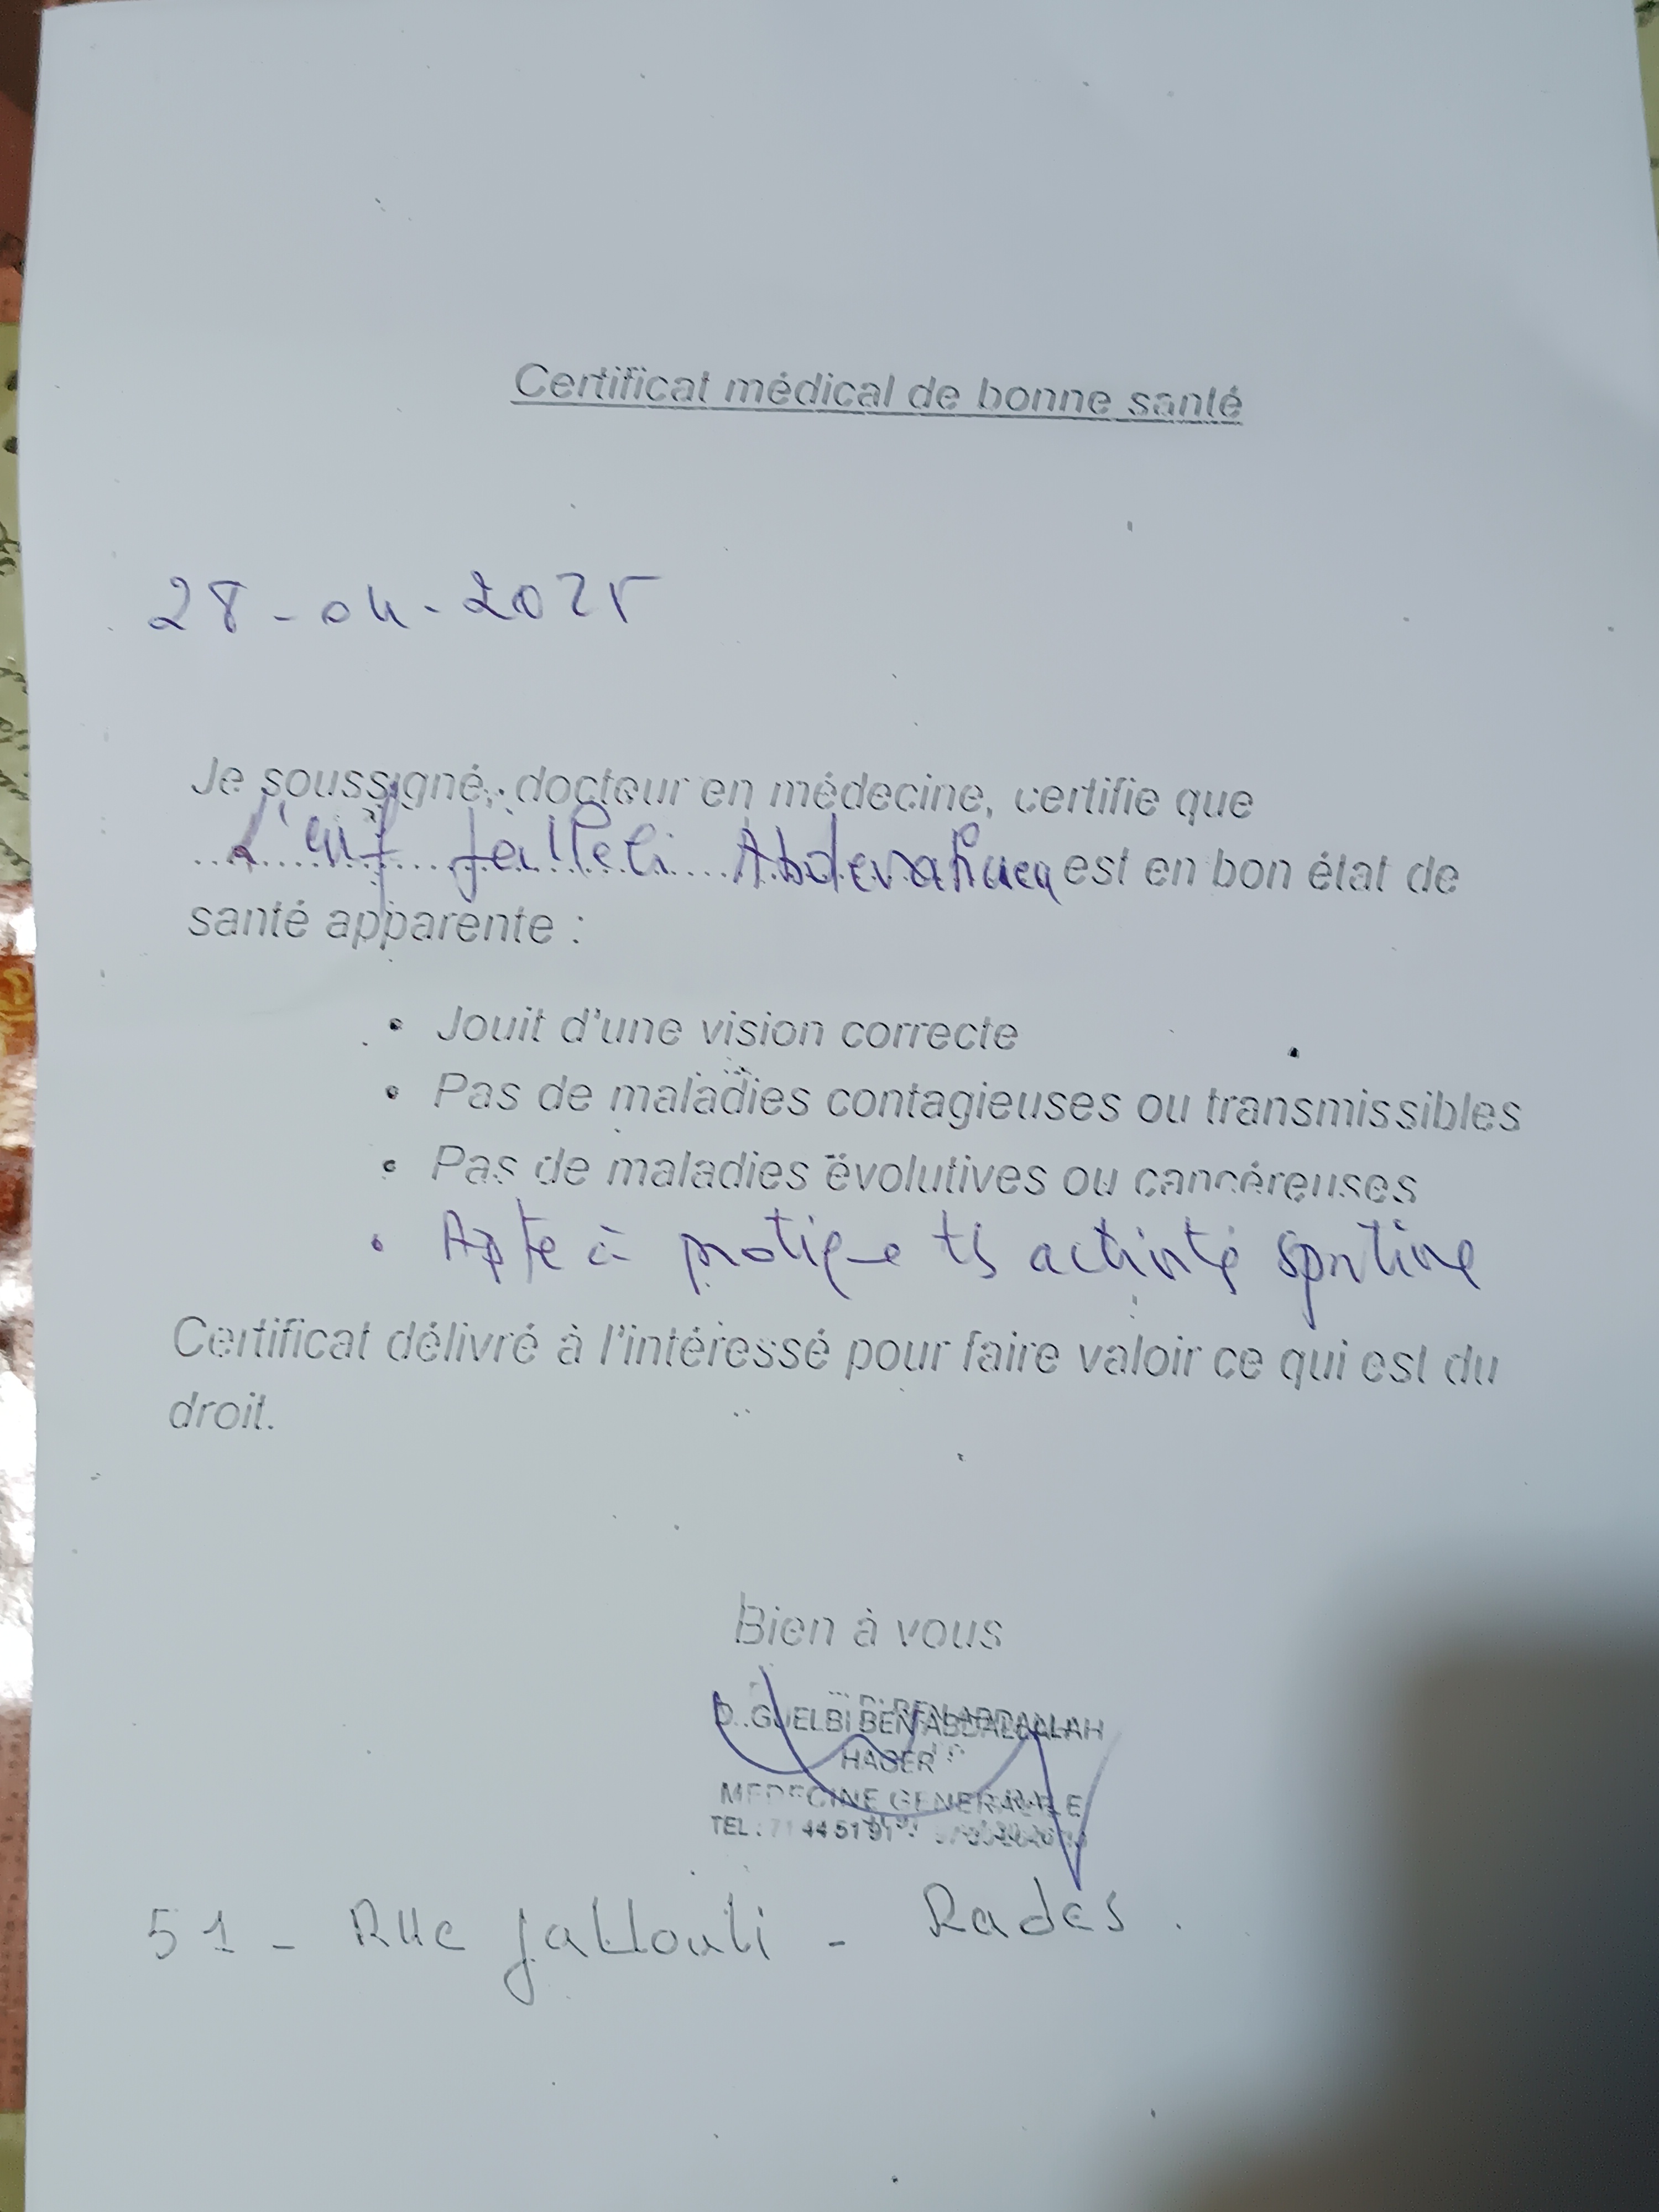 Certificat médical de bonne santé
28-04-2025
Je soussigné, docteur en médecine, certifie que
L'enf Abderahmen est en bon état de
santé apparente :
• Jouit d'une vision correcte
• Pas de maladies contagieuses ou transmissibles
• Pas de maladies évolutives ou cancéreuses
• Apte à pratique ts activité sportive
Certificat délivré à l'intéressé pour faire valoir ce qui est du
droit.
Bien à vous
GUELBI BEN ABDALLAH
HAGER
MEDECINE GENERALE
TEL : 71 44 51 91
51 - Rue - Rades .